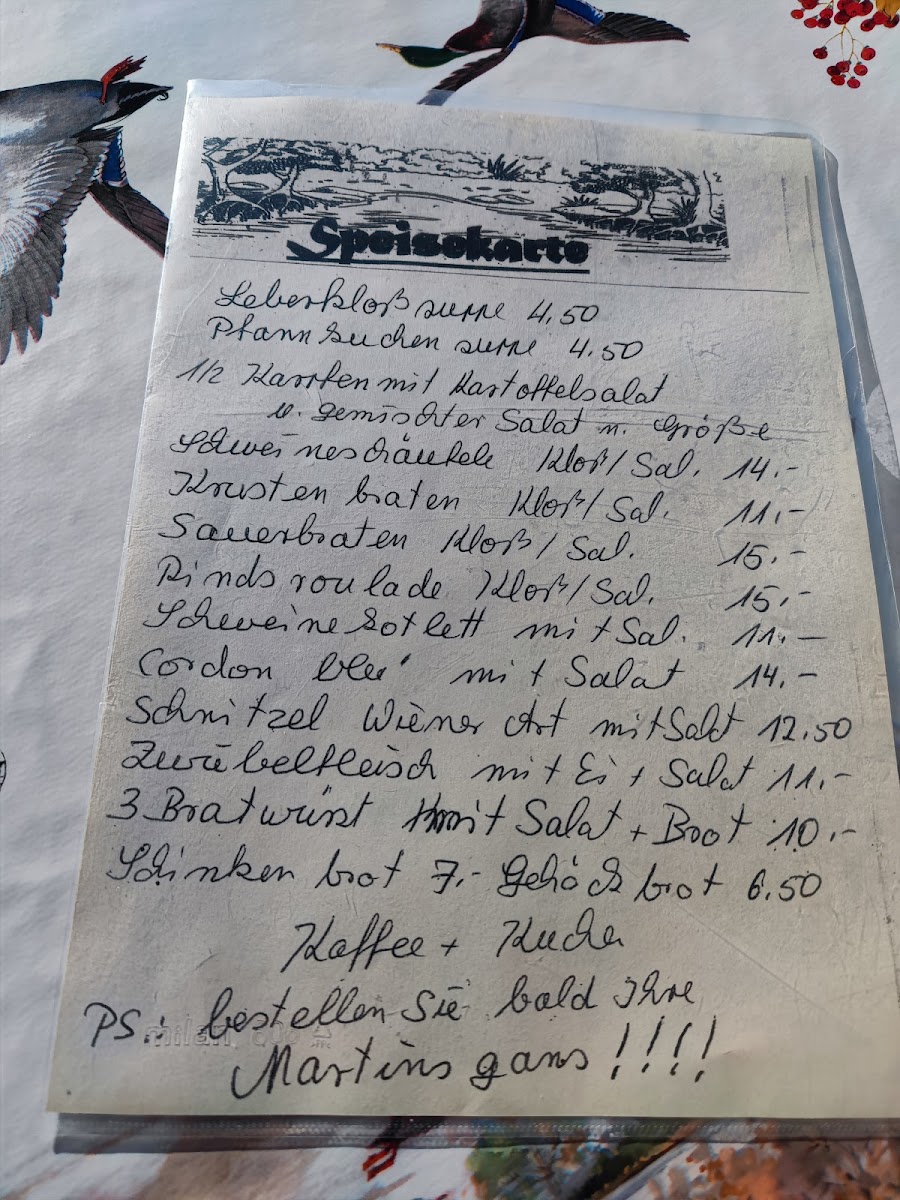 Speisekarte
Leberkloßsuppe 4.50
Pfannkuchensuppe 4.50
1/2 Karpfen mit Kartoffelsalat
u. gemischter Salat n. Größe
Schweineschäufele Kloß/Sal. 14.-
Krustenbraten Kloß/Sal. 11.-
Sauerbraten Kloß/Sal. 15.-
Rindsroulade Kloß/Sal. 15.-
Schweinekotlett mit Sal. 11.-
Cordon bleu mit Salat 14.-
Schnitzel Wiener Art mit Salat 12.50
Zwiebelfleisch mit Ei + Salat 11.-
3 Bratwürst mit Salat + Brot 10.-
Schinkenbrot 7.- Gehäckbrot 6.50
Kaffee + Kuchen
PS.: bestellen Sie bald Ihre
Martinsgans !!!!